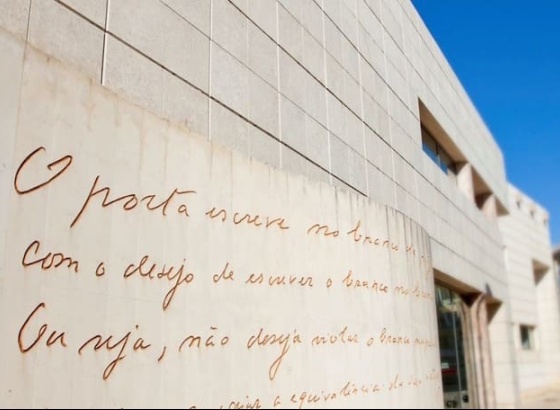 O poeta escreve no branco da
com o desejo de escrever o branco no branco
Ou seja, não deseja violar o branco
criar a equivalência do seu